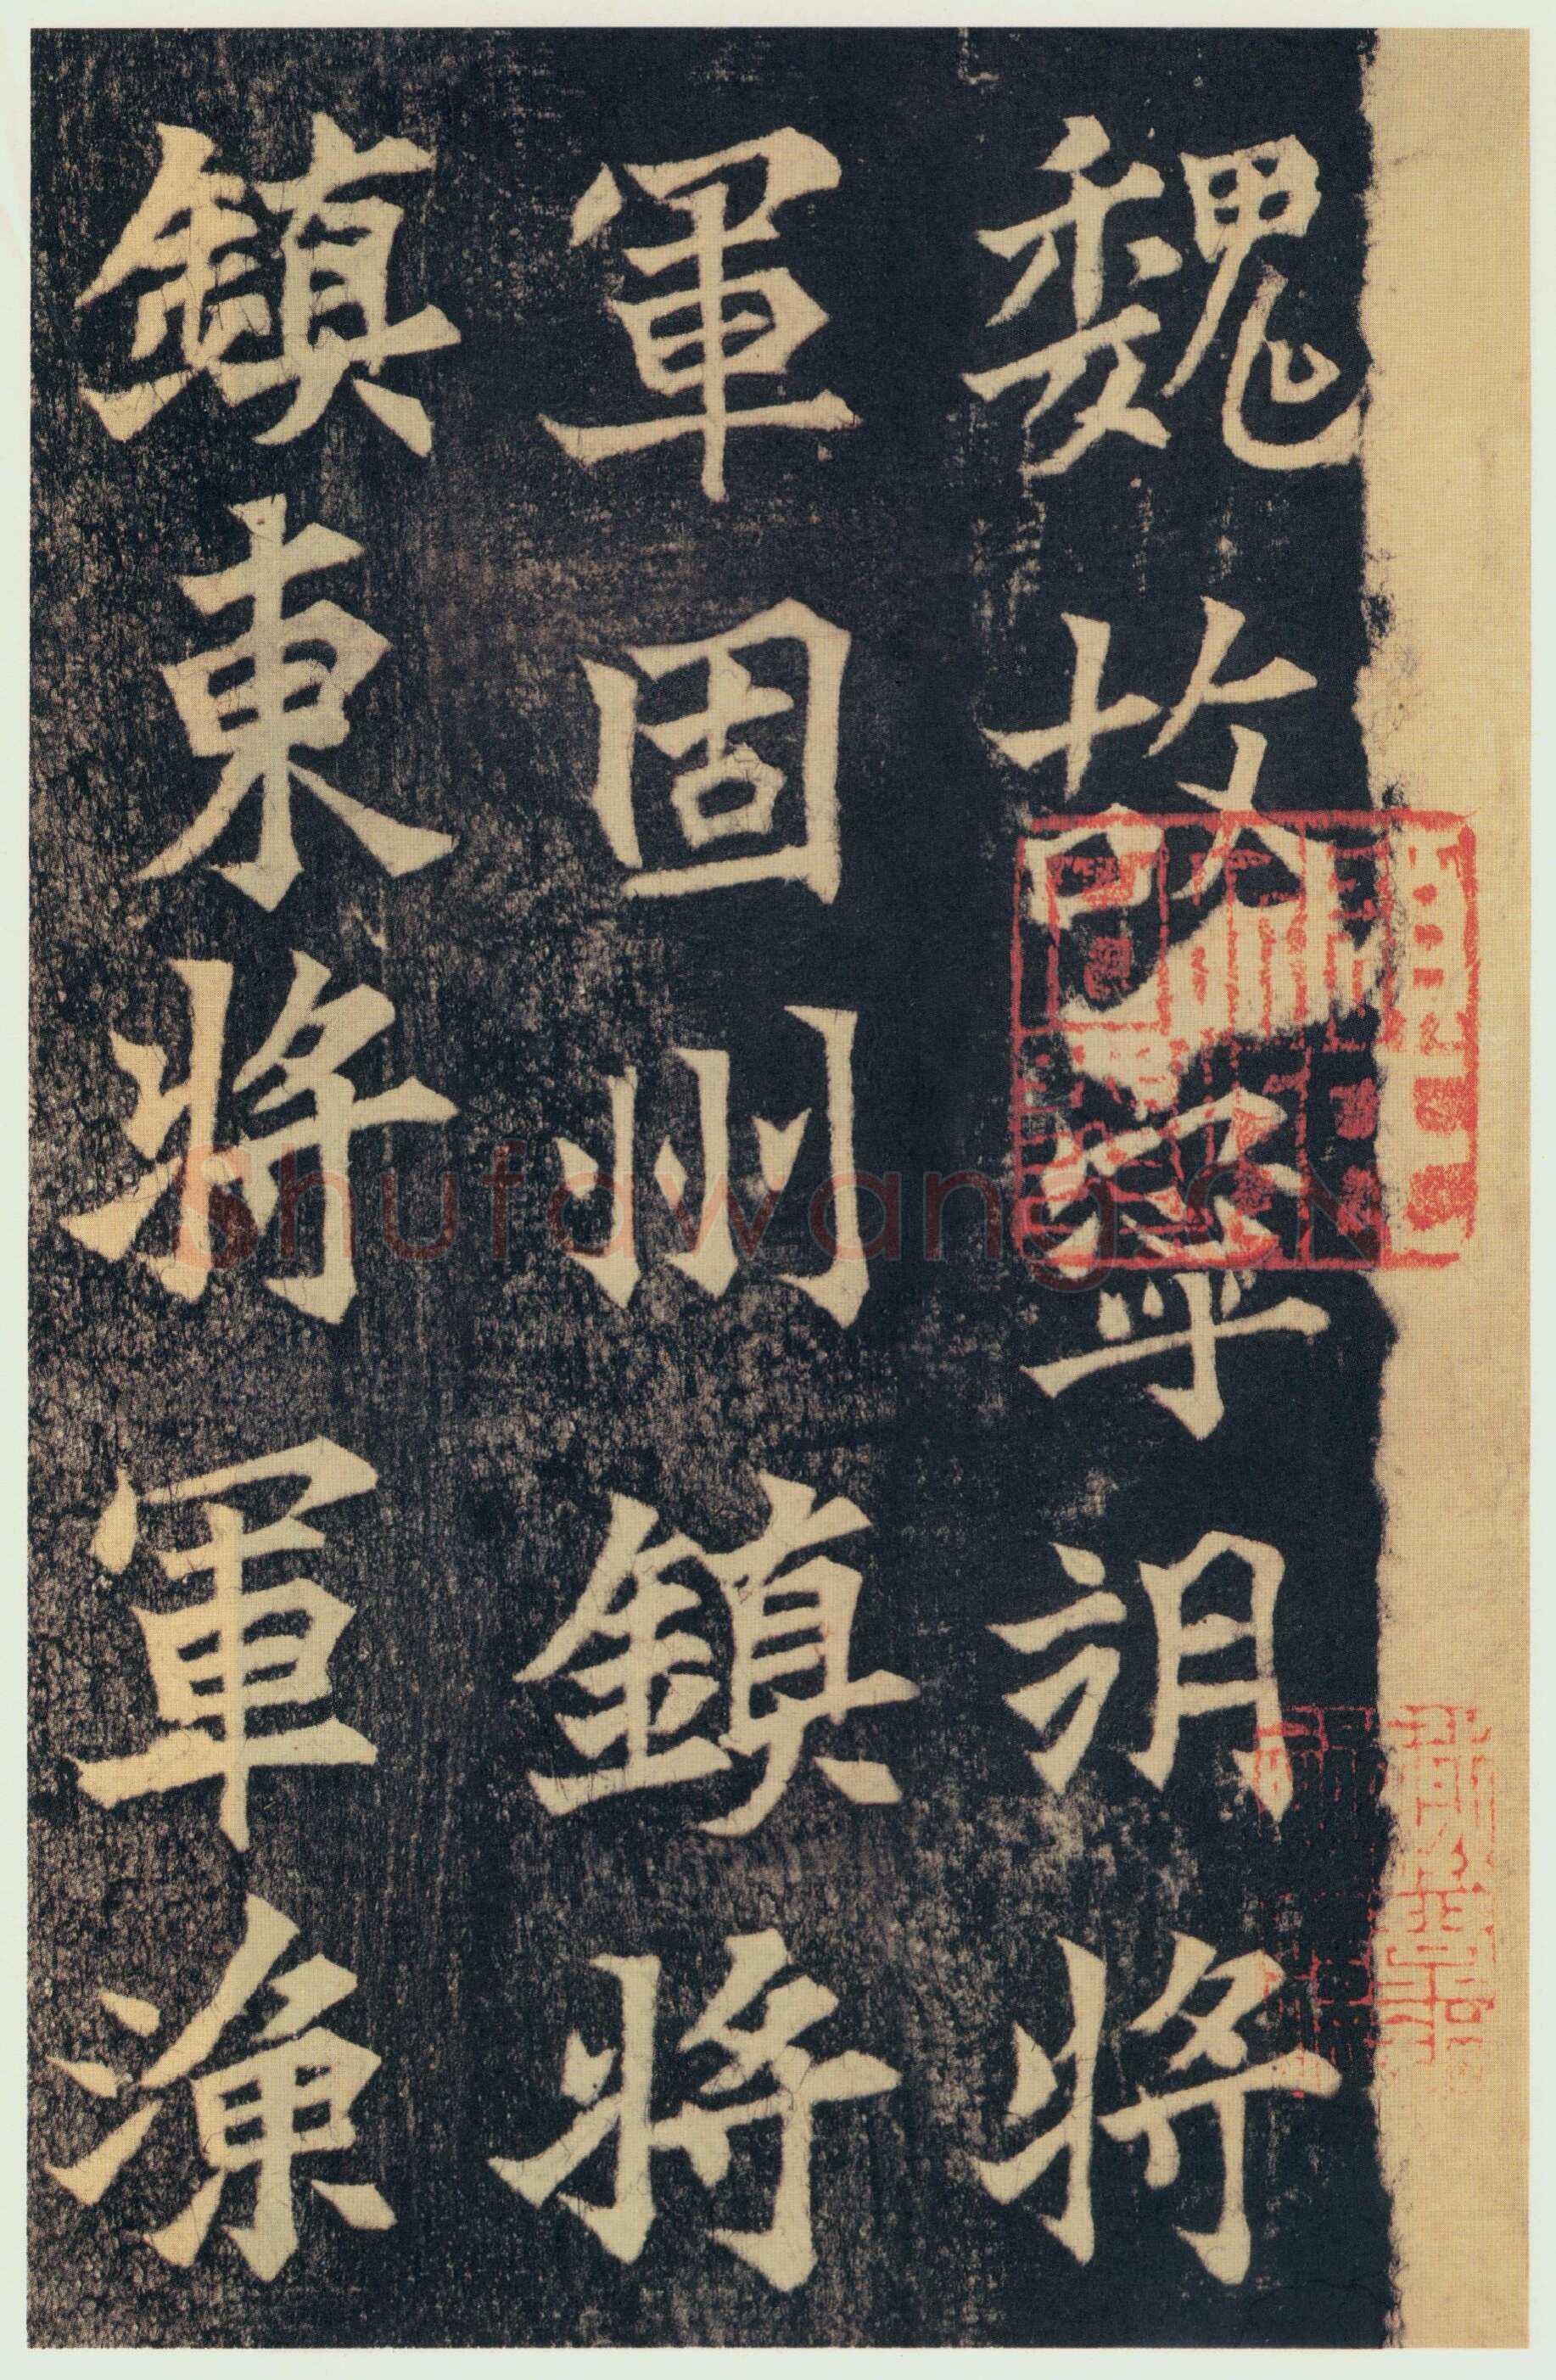 魏故寧朔將
軍固州鎮將
鎮東將軍漁
Shufawang.CN